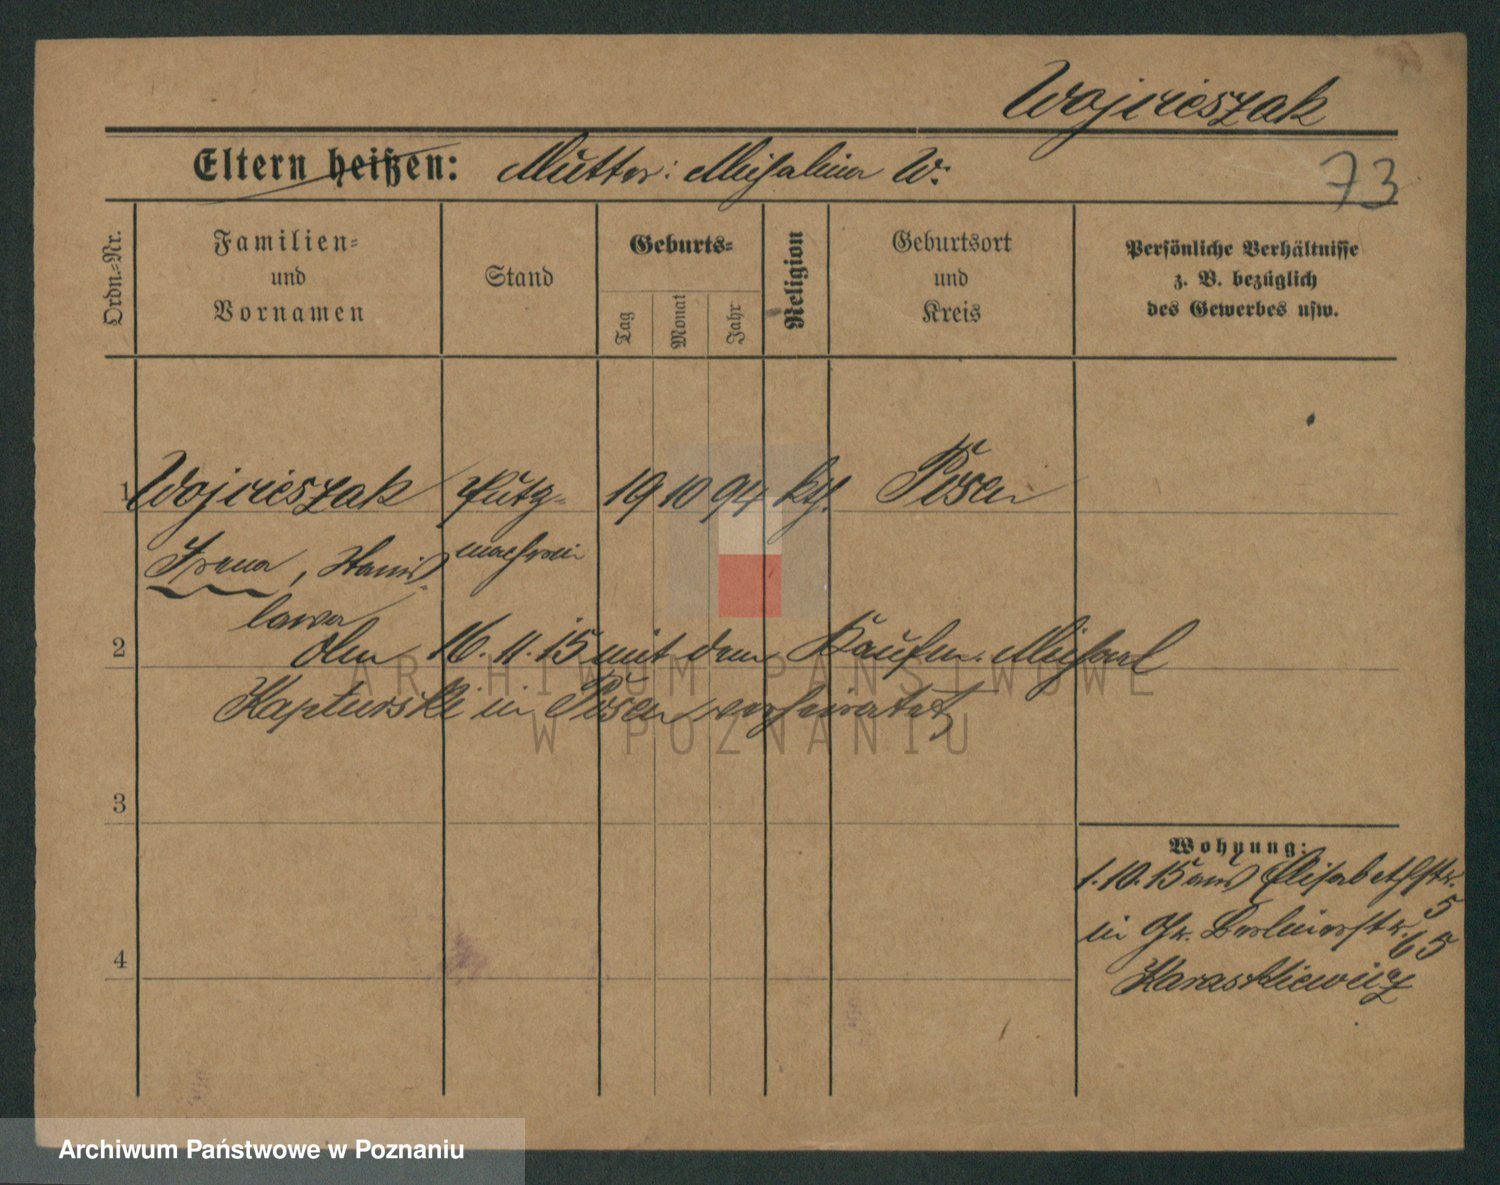 Wojcieszak
Eltern heißen: Mutter: Michalina W.
73
Ordn.=Nr.
Familien=
und
Vornamen
Stand
Geburts=
Tag
Monat
Jahr
Religion
Geburtsort
und
Kreis
Persönliche Verhältnisse
z. B. bezüglich
des Gewerbes usw.
1 Wojcieszak Putz= 19 10 94 kth. Posen
Irena, Stanis= macherin
lawa
2 Am 16.11.15 mit dem Kaufm. Michael
Kapturski in Posen verheiratet
3
Wohnung:
1.10.15 aus Elisabethstr.
5
in Gr. Berlinerstr. 65
Karaskiewicz
4
ARCHIWUM PAŃSTWOWE
W POZNANIU
Archiwum Państwowe w Poznaniu